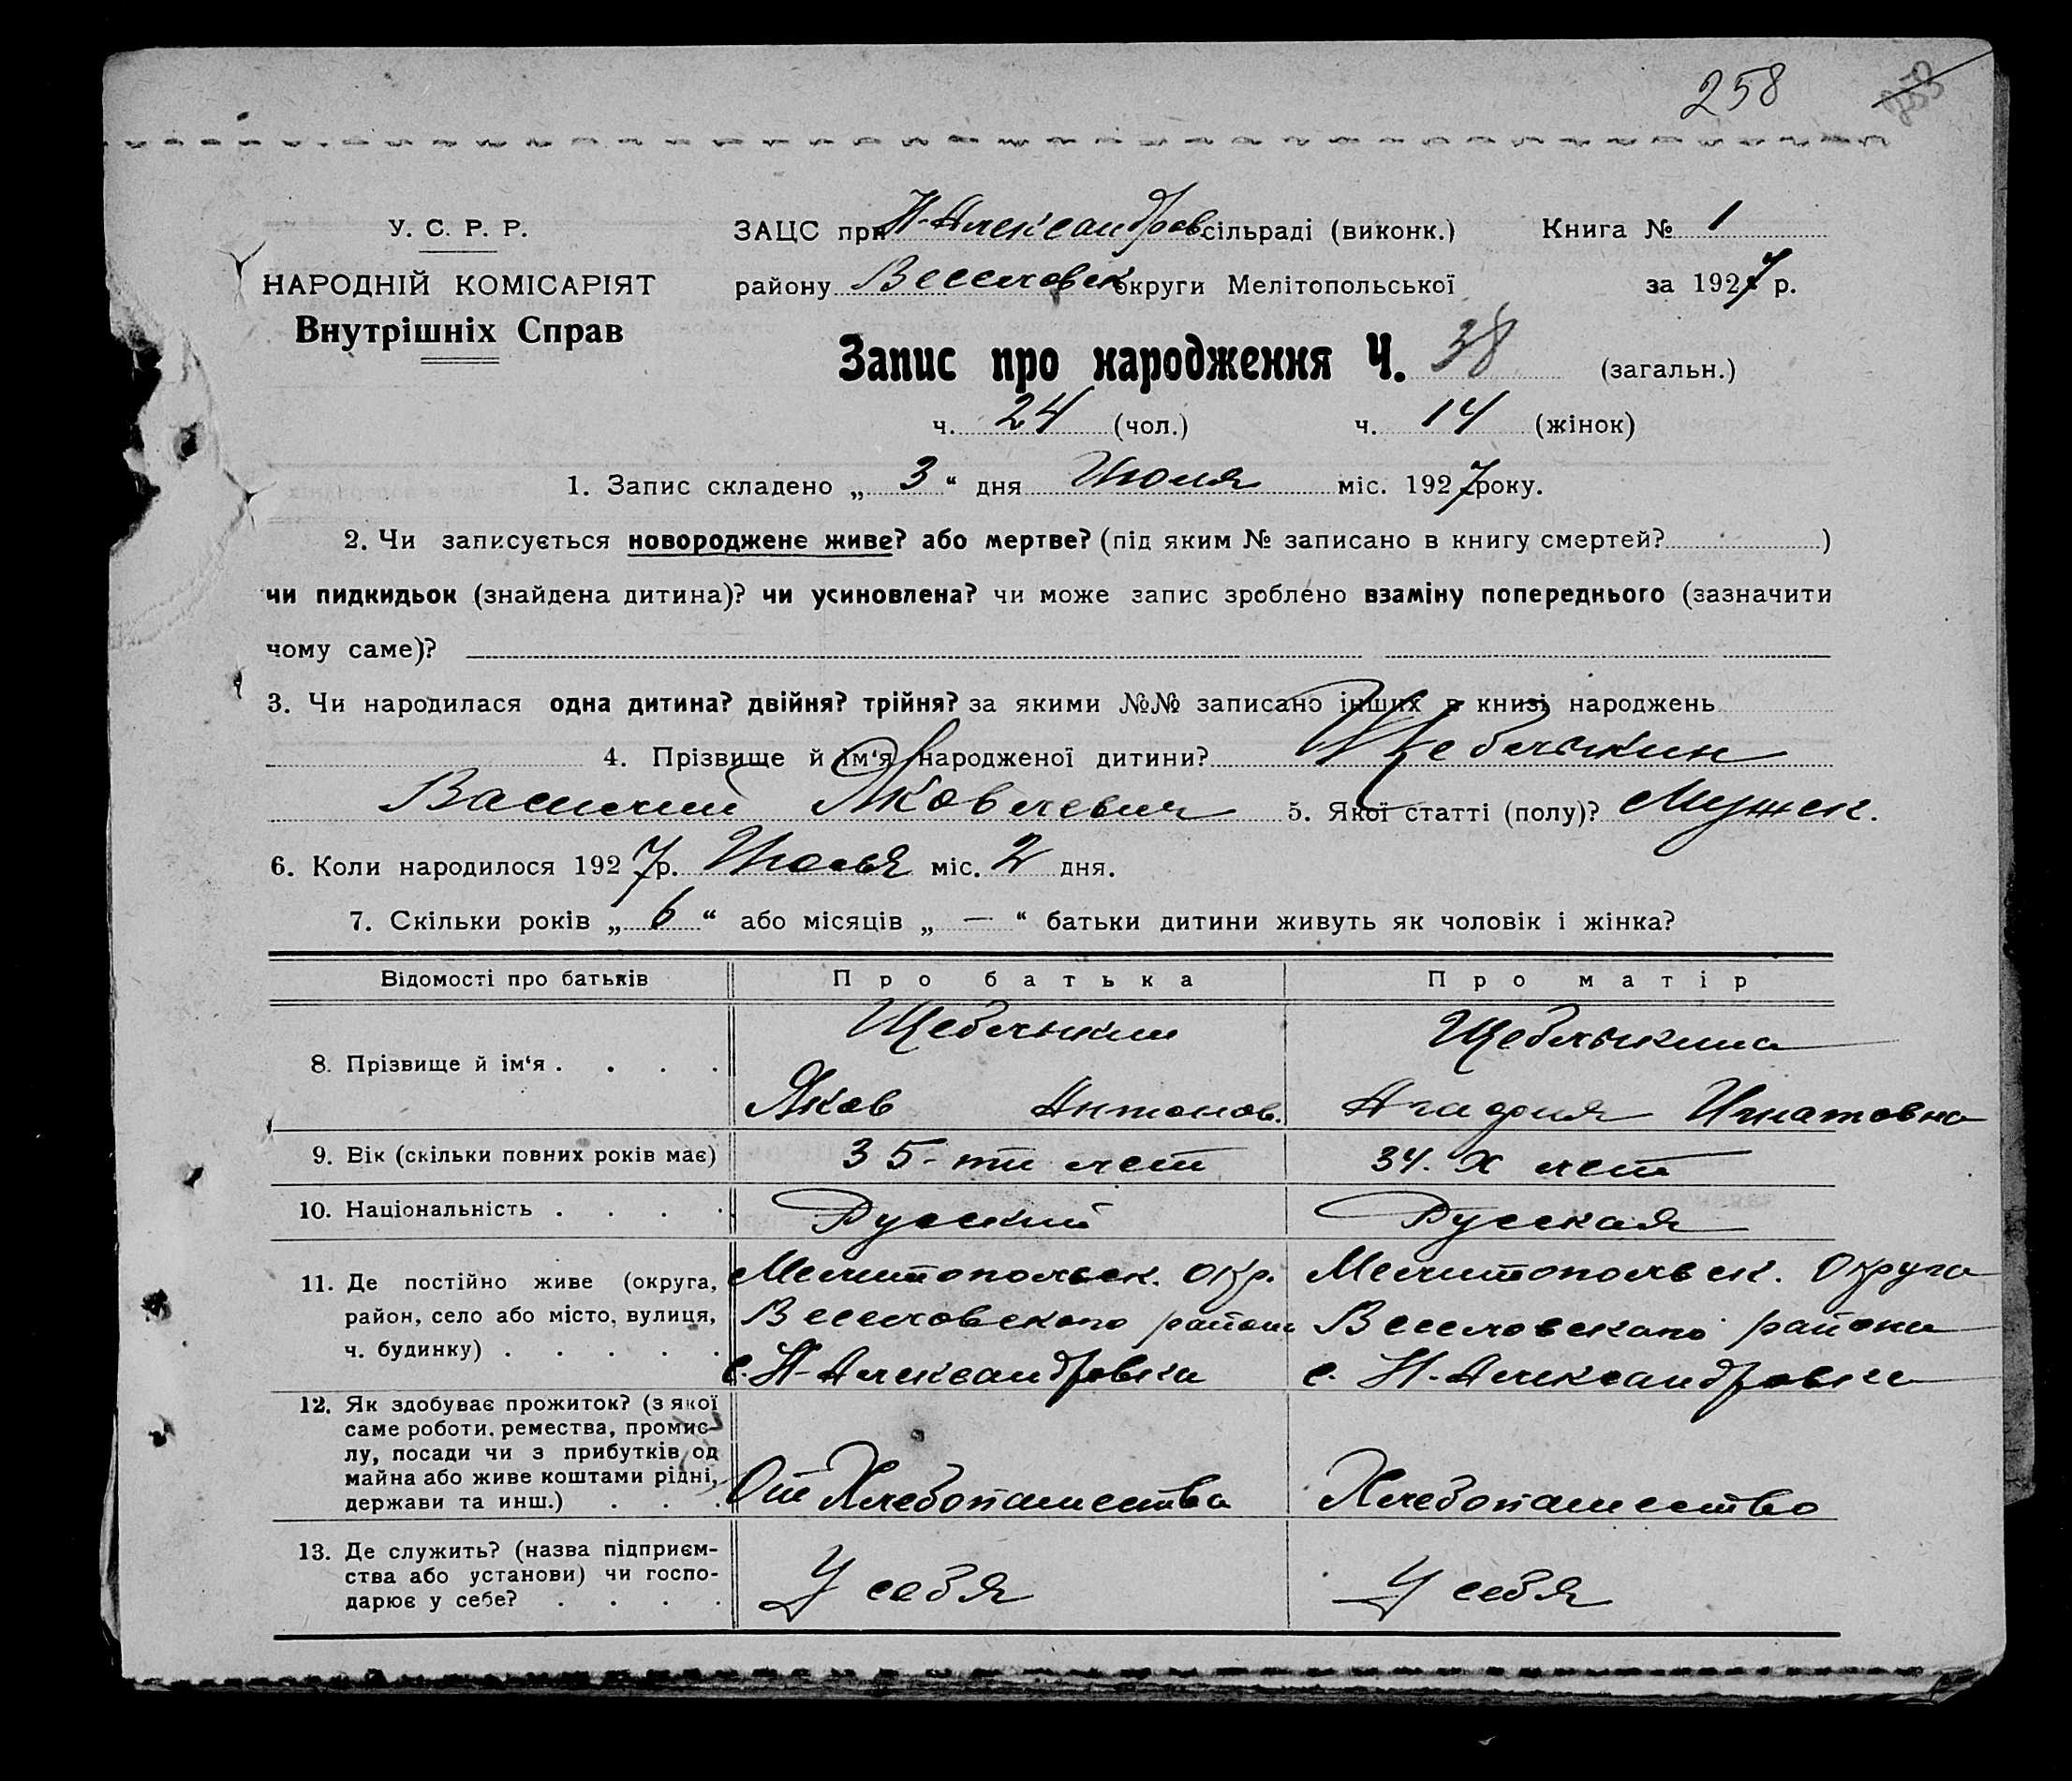 258
У. С. Р. Р.
НАРОДНІЙ КОМІСАРІЯТ
Внутрішніх Справ
ЗАЦС при Н-Александров сільраді (виконк.) Книга № 1
району Веселовск округи Мелітопольської за 1927 р.
Запис про народження Ч. 38 (загальн.)
ч. 24 (чол.) ч. 14 (жінок)
1. Запис складено „ 3 “ дня Июля міс. 1927 року.
2. Чи записується новороджене живе? або мертве? (під яким № записано в книгу смертей? )
чи пидкидьок (знайдена дитина)? чи усиновлена? чи може запис зроблено взаміну попереднього (зазначити
чому саме)?
3. Чи народилася одна дитина? двійня? трійня? за якими №№ записано інших в книзі народжень
4. Прізвище й ім‘я народженої дитини? Щеблыкин
Василий Яковлевич 5. Якої статті (полу)? Мужск.
6. Коли народилося 1927 р. Июля міс. 2 дня.
7. Скільки років „ 6 “ або місяців „ — “ батьки дитини живуть як чоловік і жінка?
Відомості про батьків Про батька Про матір
8. Прізвище й ім‘я . . . . Щеблыкин Щеблыкина
Яков Антонов. Агафия Игнатовна
9. Вік (скільки повних років має) 35-ти лет 34-х лет
10. Національність . . . . Русский Русская
11. Де постійно живе (округа, Мелитопольск. окр. Мелитопольск. Округа
район, село або місто, вулиця, Веселовского района Веселовского района
ч. будинку) . . . . . с. Н-Александровка с. Н-Александровка
12. Як здобуває прожиток? (з якої
саме роботи, ремества, промис-
лу, посади чи з прибутків од
майна або живе коштами рідні,
держави та инш.) . . . От Хлебопашества Хлебопашество
13. Де служить? (назва підприєм-
ства або установи) чи госпо-
дарює у себе? . . . . У себя У себя